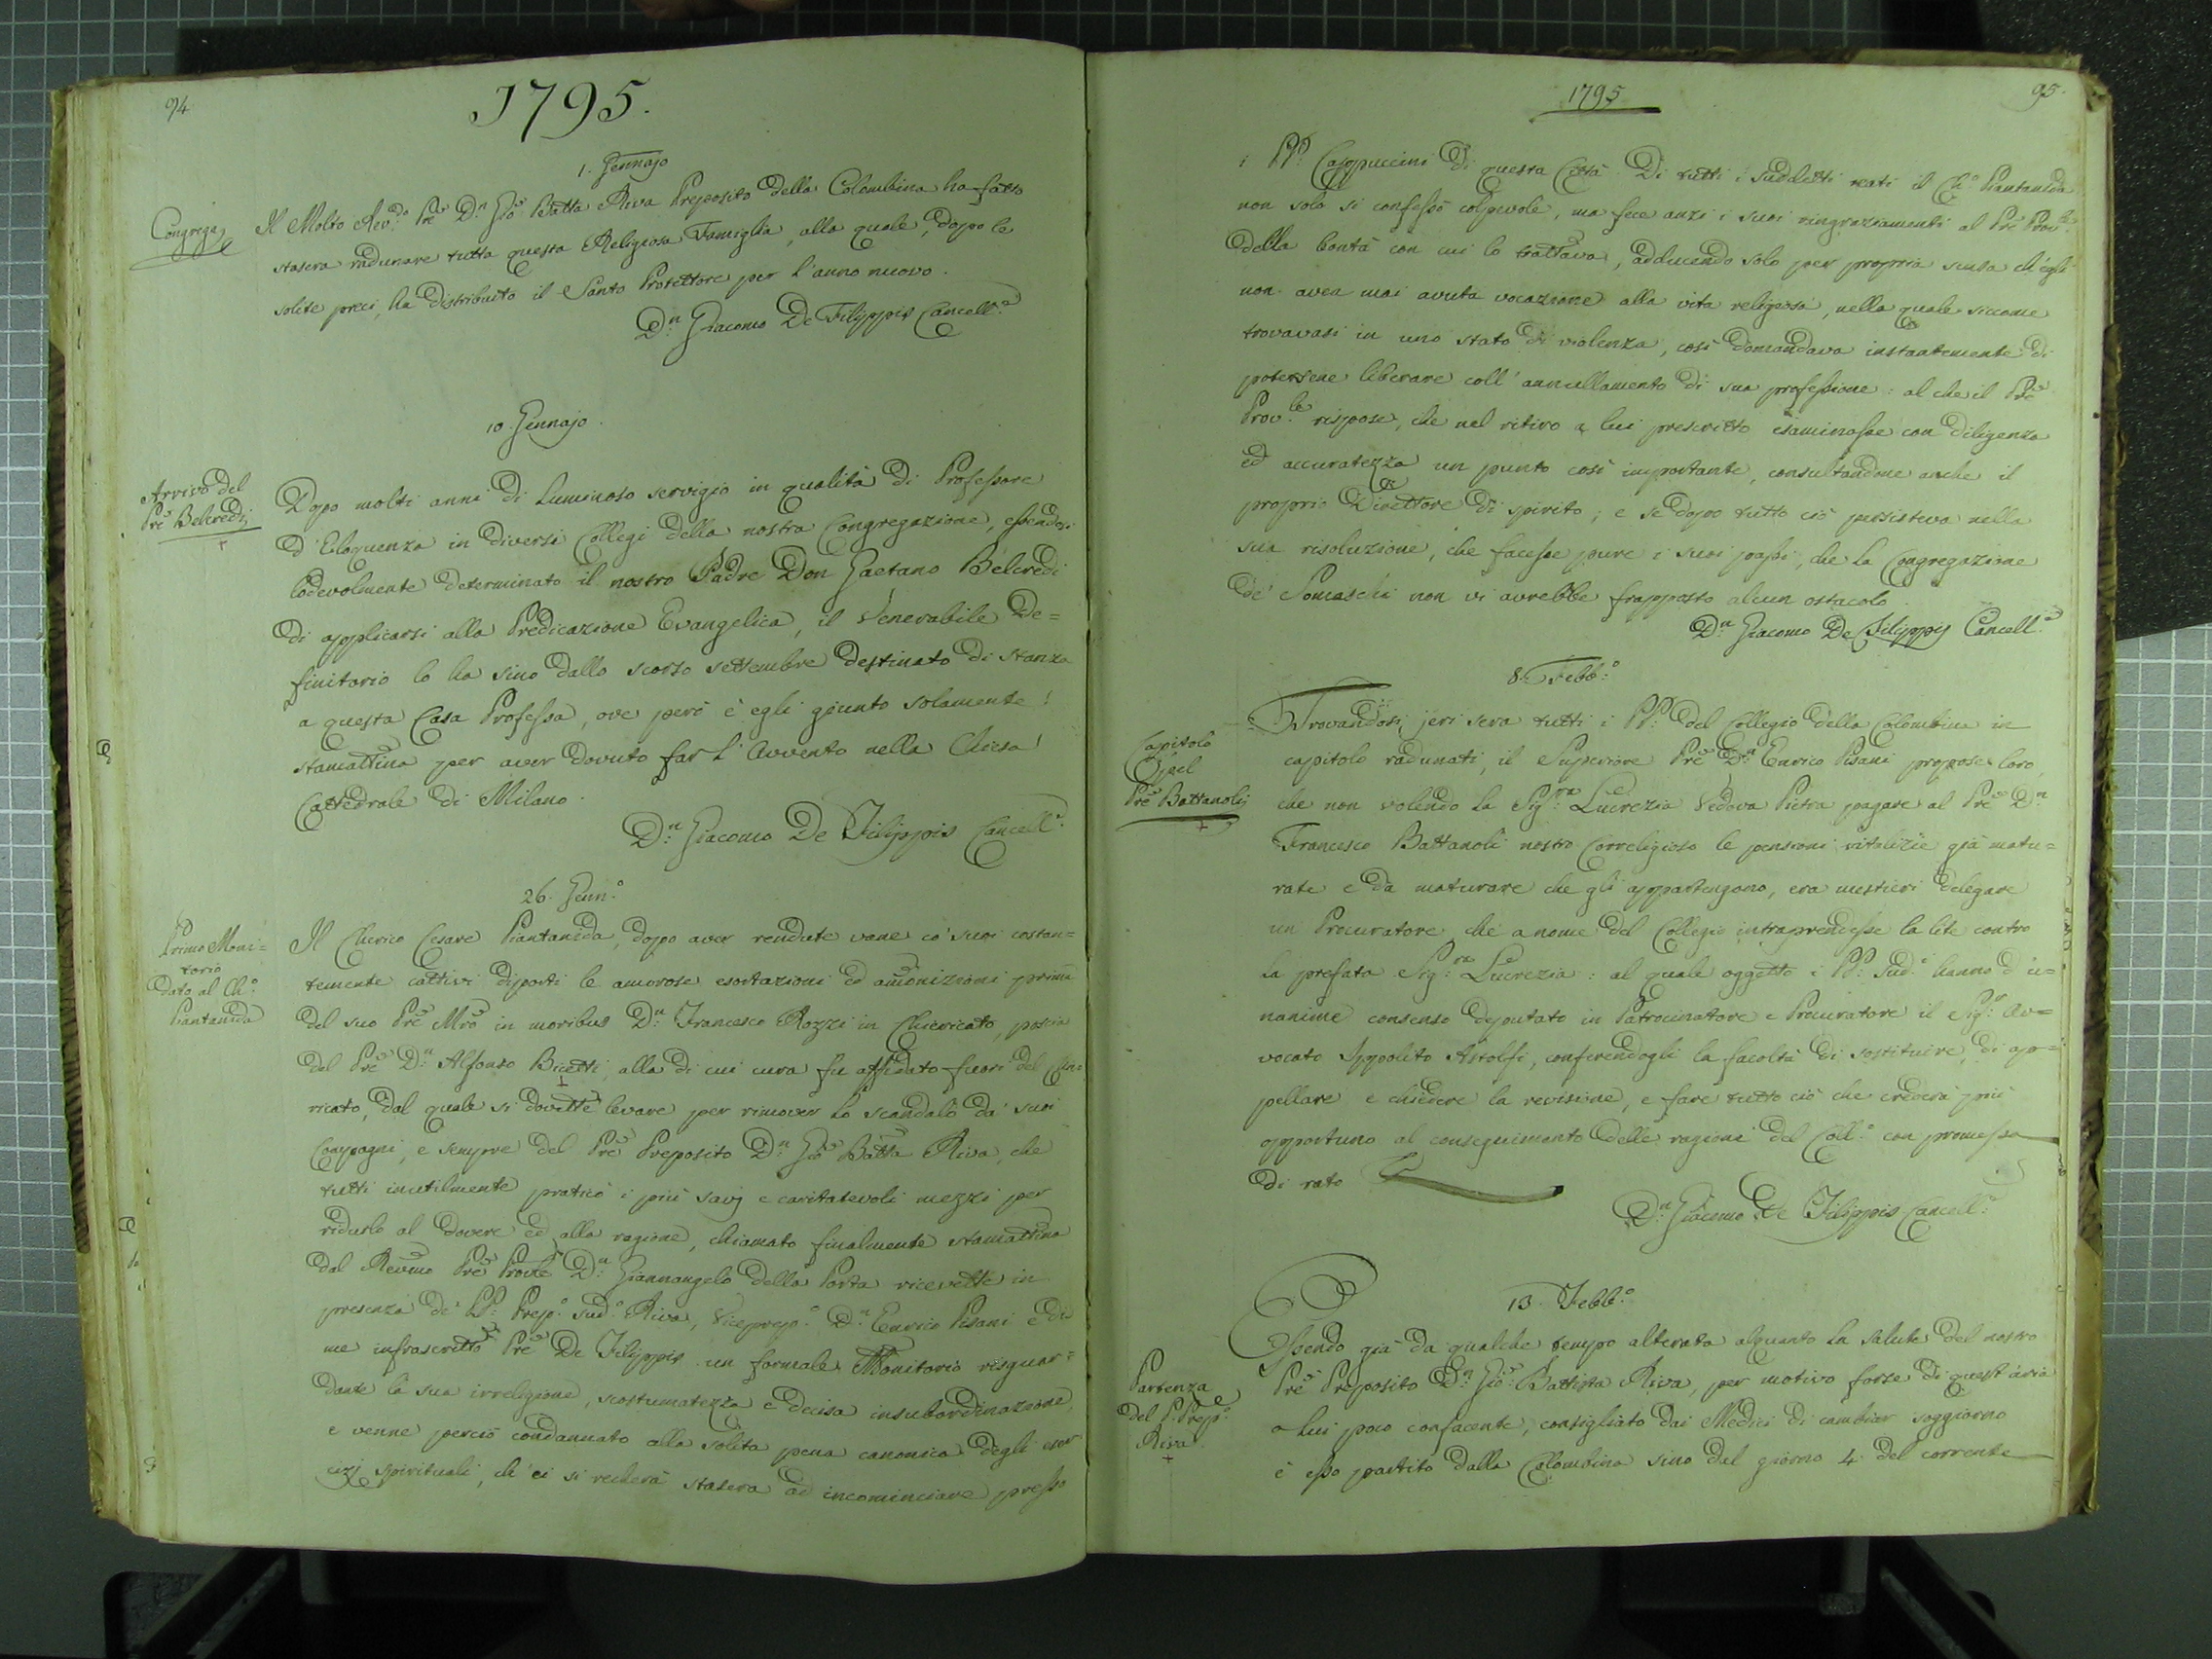 94
1795.
1. Gennajo
Congrega
Il Molto Rev.do Pre D.n Gio Batta Riva Preposito della Colombina ha fatto
stasera radunare tutta questa Religiosa Famiglia, alla quale, dopo le
solite preci, ha distribuito il Santo Protettore per l'anno nuovo.
D.n Giacomo De Filippis Cancell.e
10. Gennajo.
Arrivo del
Pre Belcredi
Dopo molti anni di luminoso servigio in qualità di Professore
d'Eloquenza in diversi Collegi della nostra Congregazione, essendosi
lodevolmente determinato il nostro Padre Don Gaetano Belcredi
di applicarsi alla Predicazione Evangelica, il Venerabile De=
finitorio lo ha sino dallo scorso settembre destinato di stanza
a questa Casa Professa, ove però è egli giunto solamente
stamattina per aver dovuto far l'Avvento nella Chiesa
Cattedrale di Milano.
D.n Giacomo De Filippis Cancell.e
26. Genn.o
Primo Moni=
torio
dato al Ch.o
Piantanida
Il Chierico Cesare Piantanida, dopo aver rendute vane co' suoi costan=
temente cattivi diporti le amorose esortazioni ed amonizioni prima
del suo Pre Mro in moribus D.n Francesco Rozzi in Chiericato, poscia
del Pre D.n Alfonso Bicetti, alla di cui cura fu affidato fuori del Chie=
ricato, dal quale si dovette levare per rimover lo scandalo da' suoi
Compagni, e sempre del Pre Preposito D.n Gio Batta Riva, che
tutti inutilmente praticò i più savj e caritatevoli mezzi per
ridurlo al dovere ed alla ragione, chiamato finalmente stamattina
dal Revmo Pre Provle D.n Giannangelo della Porta ricevette in
presenza de' PP: Prep.o sud.o Riva, Viceprep.o D.n Enrico Pisani e di
me infrascritto Pre De Filippis un formale Monitorio risguar=
dante la sua irreligione, scostumatezza e decisa insubordinazione,
e venne perciò condannato alla solita pena canonica degli eser=
cizj spirituali, ch'ei si recherà stasera ad incominciare presso
1795.
95.
i PP. Cappuccini di questa Città. Di tutti i suddetti reati il Ch.o Piantanida
non solo si confessò colpevole, ma fece anzi i suoi ringraziamenti al Pre Prov.le
della bontà con cui lo trattava, adducendo solo per propria scusa ch'egli
non avea mai avuta vocazione alla vita religiosa, nella quale siccome
trovavasi in uno stato di violenza, così domandava instantemente di
potersene liberare coll'annullamento di sua professione: al che il Pre
Prov.le rispose, che nel ritiro a lui prescritto esaminasse con diligenza
ed accuratezza un punto così importante, consultandone anche il
proprio Direttore di spirito; e se dopo tutto ciò persisteva nella
sua risoluzione, che facesse pure i suoi passi, che la Congregazione
de' Somaschi non vi avrebbe frapposto alcun ostacolo.
D.n Giacomo De Filippis Cancell.e
8. Febb.o
Capitolo
pel
Pre Battanoli
Trovandosi jeri sera tutti i PP: del Collegio della Colombina in
capitolo radunati, il Superiore Pre D.n Enrico Pisani propose loro,
che non volendo la Sig.ra Lucrezia Vedova Pietra pagare al Pre D.n
Francesco Battanoli nostro Correligioso le pensioni vitalizie già matu=
rate e da maturare che gli appartengono, era mestieri delegare
un Procuratore che a nome del Collegio intraprendesse la lite contro
la prefata Sig.ra Lucrezia: al quale oggetto i PP: sud.i hanno d'u=
nanime consenso deputato in Patrocinatore e Procuratore il Sig.r Av=
vocato Ippolito Astolfi, conferendogli la facoltà di sostituire, di ap=
pellare e chiedere la revisione, e fare tutto ciò che crederà più
opportuno al conseguimento delle ragioni del Coll.o con promessa
di rato
D.n Giacomo De Filippis Cancell.e
13. Febb.o
Partenza
del P. Prep.o
Riva.
Essendo già da qualche tempo alterata alquanto la salute del nostro
Pre Preposito D.n Gio: Battista Riva, per motivo forse di quest'aria
a lui poco confacente, consigliato dai Medici di cambiar soggiorno
è esso partito dalla Colombina sino dal giorno 4 del corrente